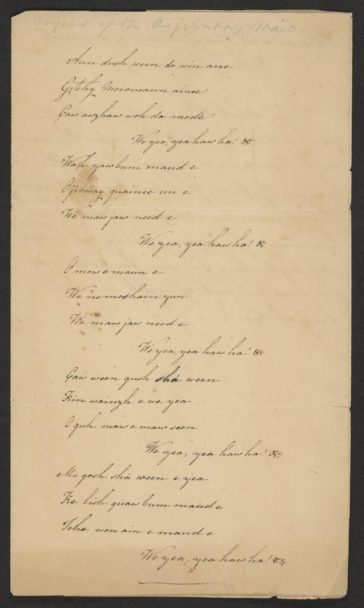 Original of the Ojibway Maid.
Aun dush ween do win ane
Gitchy Mocomaun aince
Caw auzhaw woh da mode
We yea, yea haw ha! &c
Wah yaw bum maud e
Ojibway quaince un e
We maw jaw need e
We yea, yea haw ha! &c
O mow e maun e
We nemoshain yun
We maw jaw need e
We yea, yea haw ha! &c
Caw ween gush sha ween
Kin wainzh e we yea
O gush maw e maw seen
We yea, yea haw ha! &c
Me gosh sha ween e yea
Ke bish quaw bum maud e
Tche won ain e maud e
We yea, yea haw ha! &c